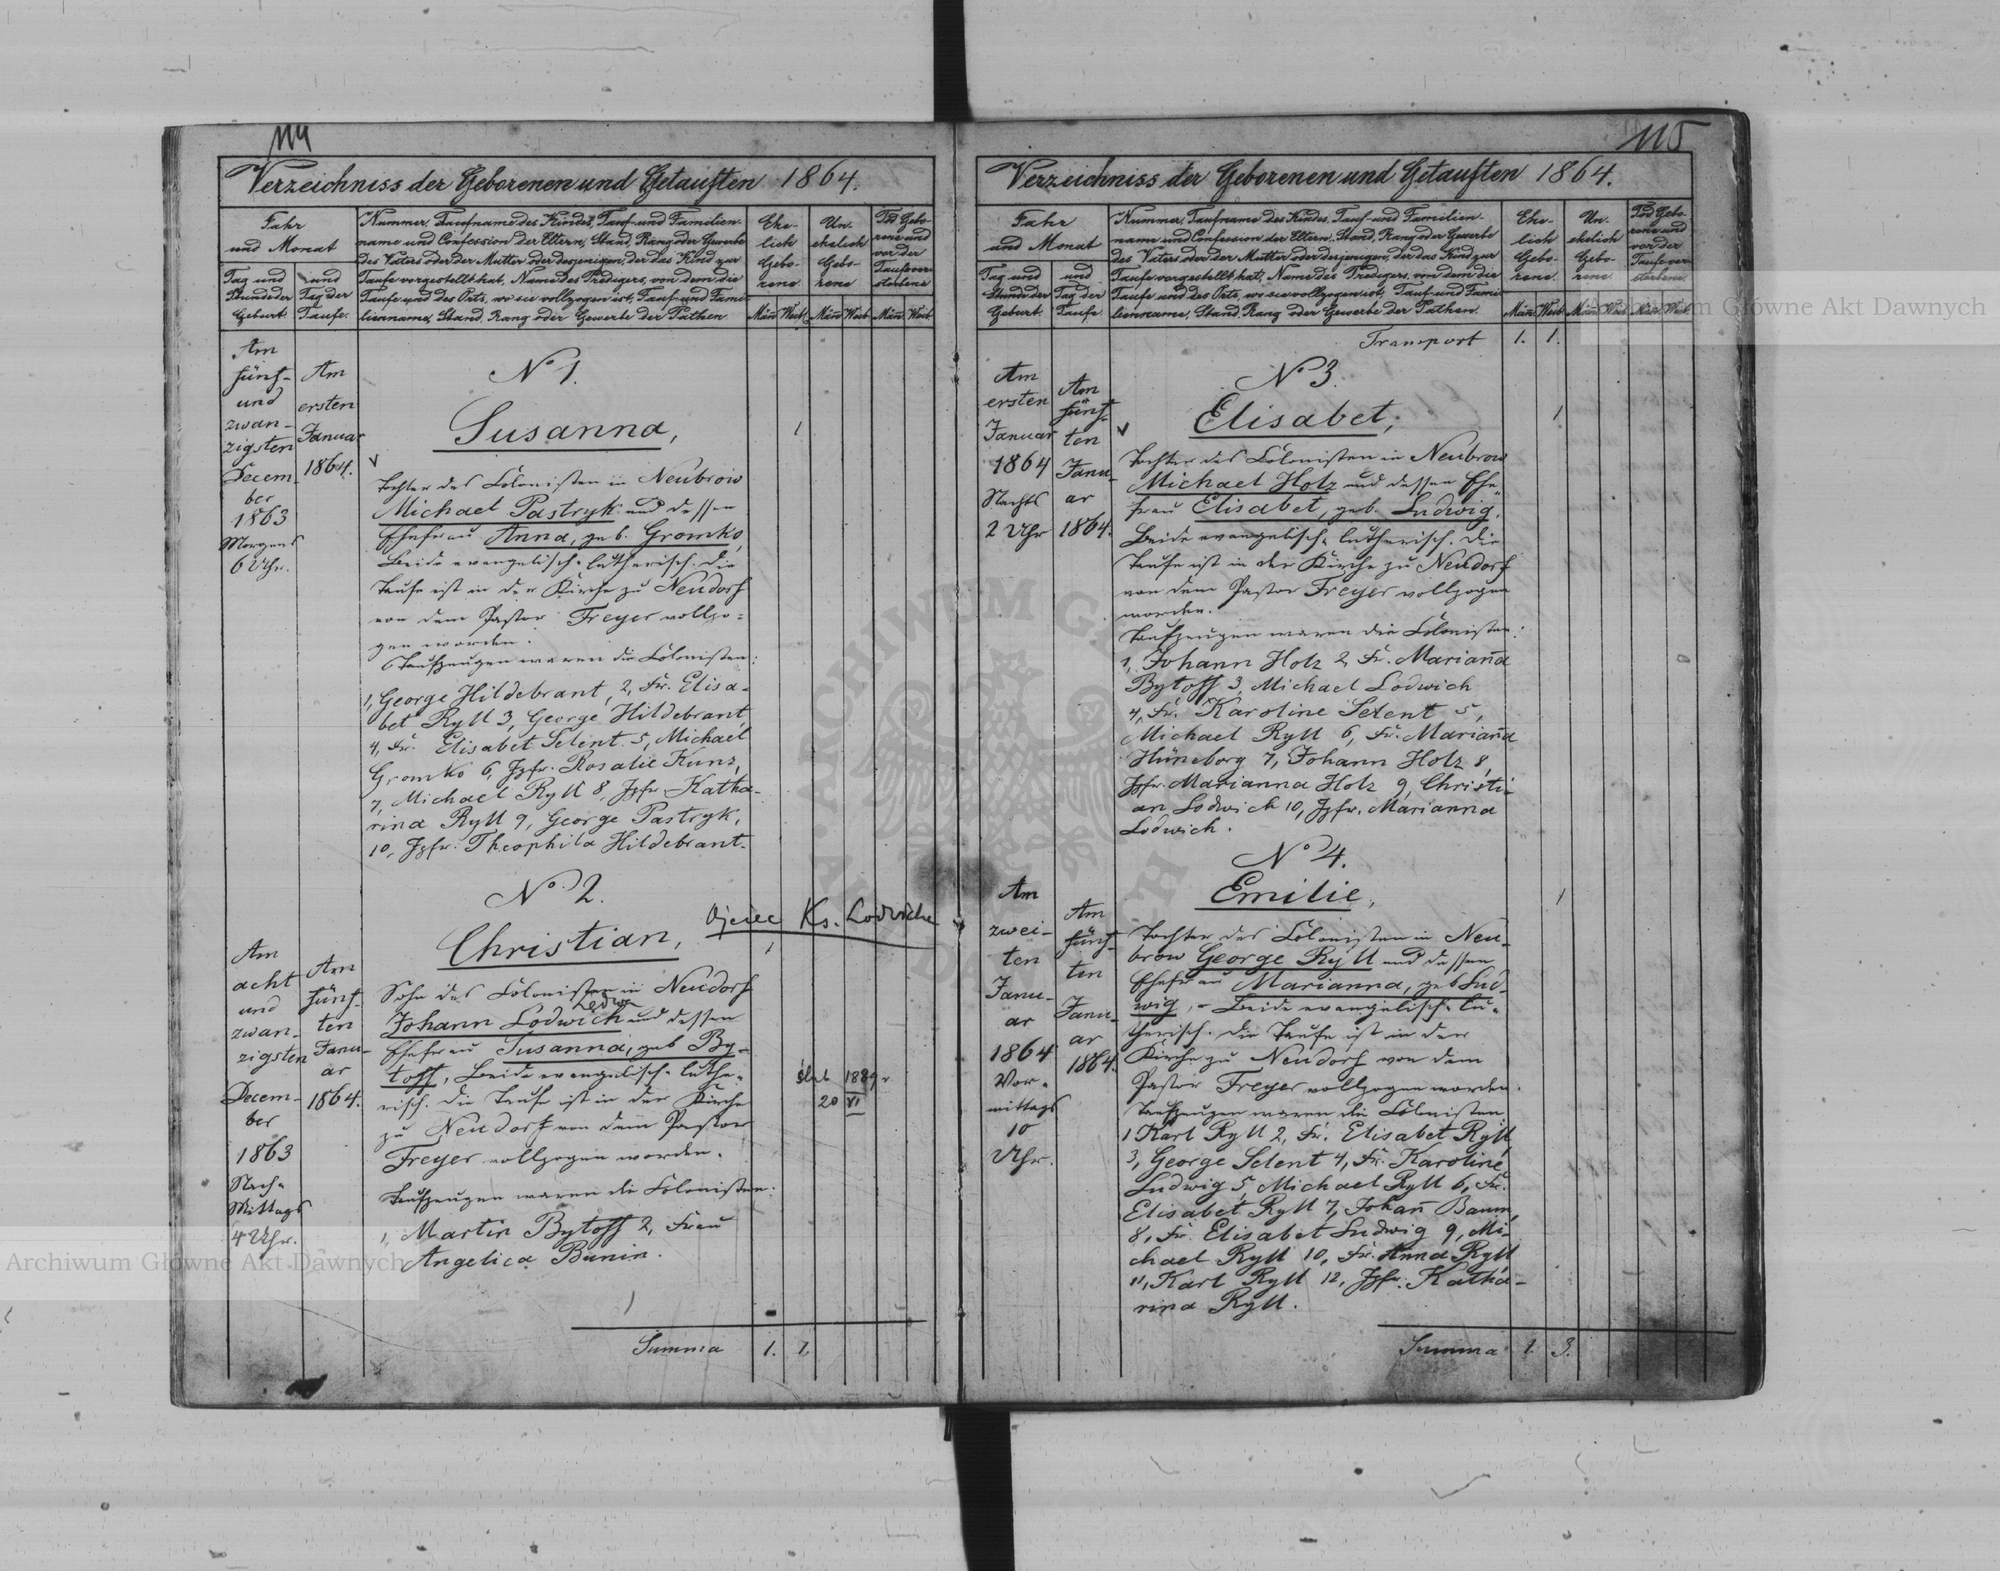 114
Verzeichniss der Geborenen und Getauften 1864.
Jahr
und Monat
Tag und
Stunde der
Geburt.
und
Tag der
Taufe.
Nummer, Taufname des Kindes, Tauf- und Familien-
name und Confession der Eltern, Stand, Rang oder Gewerbe
des Vaters oder der Mutter oder desjenigen, der das Kind zur
Taufe vorgestellt hat, Name des Predigers, von dem die
Taufe und des Orts, wo sie vollzogen ist, Tauf- und Fami-
lienname, Stand, Rang oder Gewerbe der Pathen
Ehe-
lich
Gebo-
rene
Un-
ehelich
Gebo-
rene
Tod Gebo-
rene und
vor der
Taufe ver-
storbene
Män Weib Män Weib Män Weib
Am
fünf-
und
zwan-
zigsten
Decem-
ber
1863
Morgens
6 Uhr.
Am
ersten
Januar
1864.
No 1.
Susanna,
1
Tochter des Colonisten in Neubrow
Michael Pastryk und dessen
Ehefrau Anna, geb. Gromko,
Beide evangelisch-lutherisch. Die
Taufe ist in der Kirche zu Neudorf
von dem Pastor Freyer vollzo-
gen worden.
Taufzeugen waren die Colonisten:
1, George Hildebrant, 2, Fr. Elisa-
bet Ryll 3, George Hildebrant,
4, Fr. Elisabet Selent 5, Michael
Gromko 6, Jgfr. Rosalie Kunz,
7, Michael Ryll 8, Jgfr. Katha-
rina Ryll 9, George Pastryk,
10, Jgfr. Theophila Hildebrant.
No 2.
Ojciec Ks. Lodwicha
Christian,
1
Am
acht
und
zwan-
zigsten
Decem-
ber
1863
Nach-
Mittags
4 Uhr.
Am
fünf-
ten
Janu-
ar
1864.
Sohn des Colonisten in Neudorf
Johann Lodwich und dessen
Ehefrau Susanna, geb. By-
toff, Beide evangelisch-luthe-
risch. Die Taufe ist in der Kirche
zu Neudorf von dem Pastor
Freyer vollzogen worden.
ślub 1889 r
20 VI
Taufzeugen waren die Colonisten:
1, Martin Bytoff 2, Frau
Angelica Bunin.
Summa 1. 1.
115
Verzeichniss der Geborenen und Getauften 1864.
Jahr
und Monat
Tag und
Stunde der
Geburt.
und
Tag der
Taufe
Nummer, Taufname des Kindes, Tauf- und Familien-
name und Confession der Eltern, Stand, Rang oder Gewerbe
des Vaters oder der Mutter oder desjenigen, der das Kind zur
Taufe vorgestellt hat, Name des Predigers, von dem die
Taufe und des Orts, wo sie vollzogen ist, Tauf- und Fami-
lienname, Stand, Rang oder Gewerbe der Pathen.
Ehe-
lich
Gebo-
rene
Un-
ehelich
Gebo-
rene
Tod Gebo-
rene und
vor der
Taufe ver-
storbene
Män Weib Män Weib Män Weib
Transport 1. 1.
Am
ersten
Januar
1864
Nachts
2 Uhr
Am
fünf-
ten
Janu-
ar
1864.
No 3.
Elisabet,
1
Tochter des Colonisten in Neubrow
Michael Holz und dessen Ehe-
frau Elisabet, geb. Ludwig.
Beide evangelisch-lutherisch. Die
Taufe ist in der Kirche zu Neudorf
von dem Pastor Freyer vollzogen
worden.
Taufzeugen waren die Colonisten:
1, Johann Holz 2, Fr. Marianna
Bytoff 3, Michael Lodwich
4, Fr. Karoline Selent 5,
Michael Ryll 6, Fr. Marianna
Hüneborg 7, Johann Holz 8,
Jgfr. Marianna Holz 9, Christi-
an Lodwich 10, Jgfr. Marianna
Lodwich.
No 4.
Emilie,
1
Am
zwei-
ten
Janu-
ar
1864
Vor-
mittags
10
Uhr.
Am
fünf-
ten
Janu-
ar
1864.
Tochter des Colonisten in Neu-
brow George Ryll und dessen
Ehefrau Marianna, geb Lud-
wig, - Beide evangelisch-lu-
therisch. Die Taufe ist in der
Kirche zu Neudorf von dem
Pastor Freyer vollzogen worden.
Taufzeugen waren die Colonisten
1 Karl Ryll 2, Fr. Elisabet Ryll,
3, George Selent 4, Fr. Karoline
Ludwig 5, Michael Ryll 6, Fr.
Elisabet Ryll 7, Johann Baum,
8, Fr. Elisabet Ludwig 9, Mi-
chael Ryll 10, Fr. Anna Ryll
11, Karl Ryll 12, Jgfr. Katha-
rina Ryll.
Summa 1. 3.
Archiwum Główne Akt Dawnych
Archiwum Główne Akt Dawnych